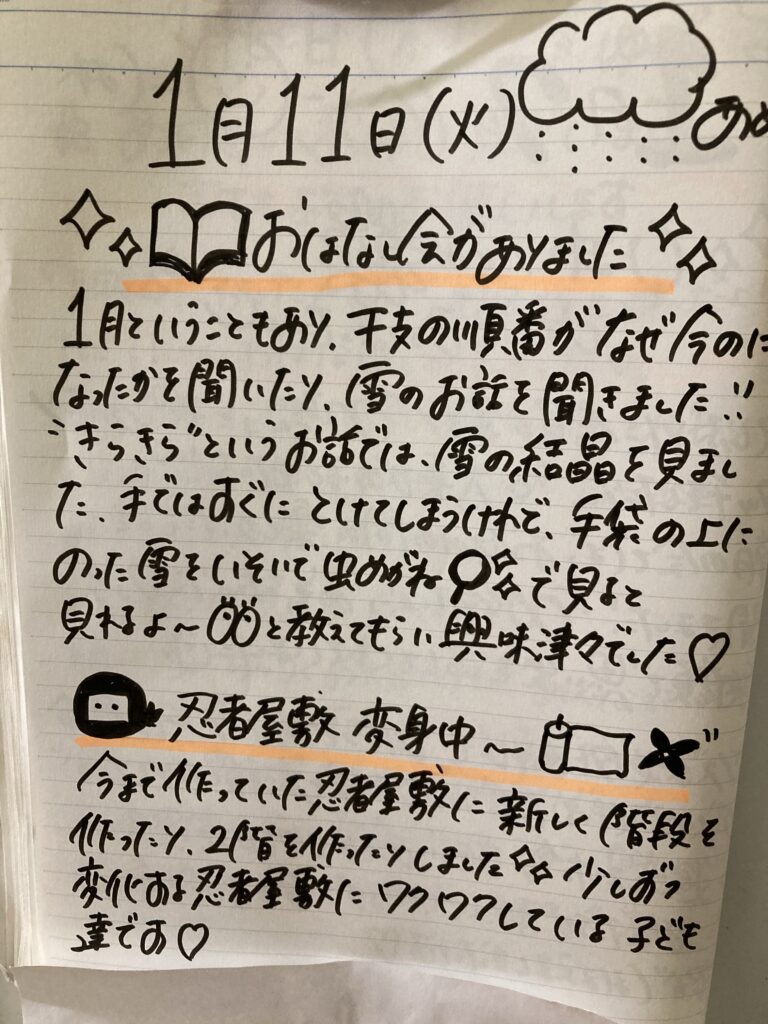 1月11日(火)
おはなし会がありました
1月ということもあり、干支の順番がなぜ今のに
なったかを聞いたり、雪のお話を聞きました!!
"きらきら"というお話では、雪の結晶を見まし
た。手ではすぐにとけてしまうけれど、手袋の上に
のった雪をいそいで虫めがねで見ると
見れるよ〜と教えてもらい興味津々でした♡
忍者屋敷 変身中〜
今まで作っていた忍者屋敷に新しく階段を
作ったり、2階を作ったりしました 少しずつ
変化する忍者屋敷にワクワクしている子ども
達です♡